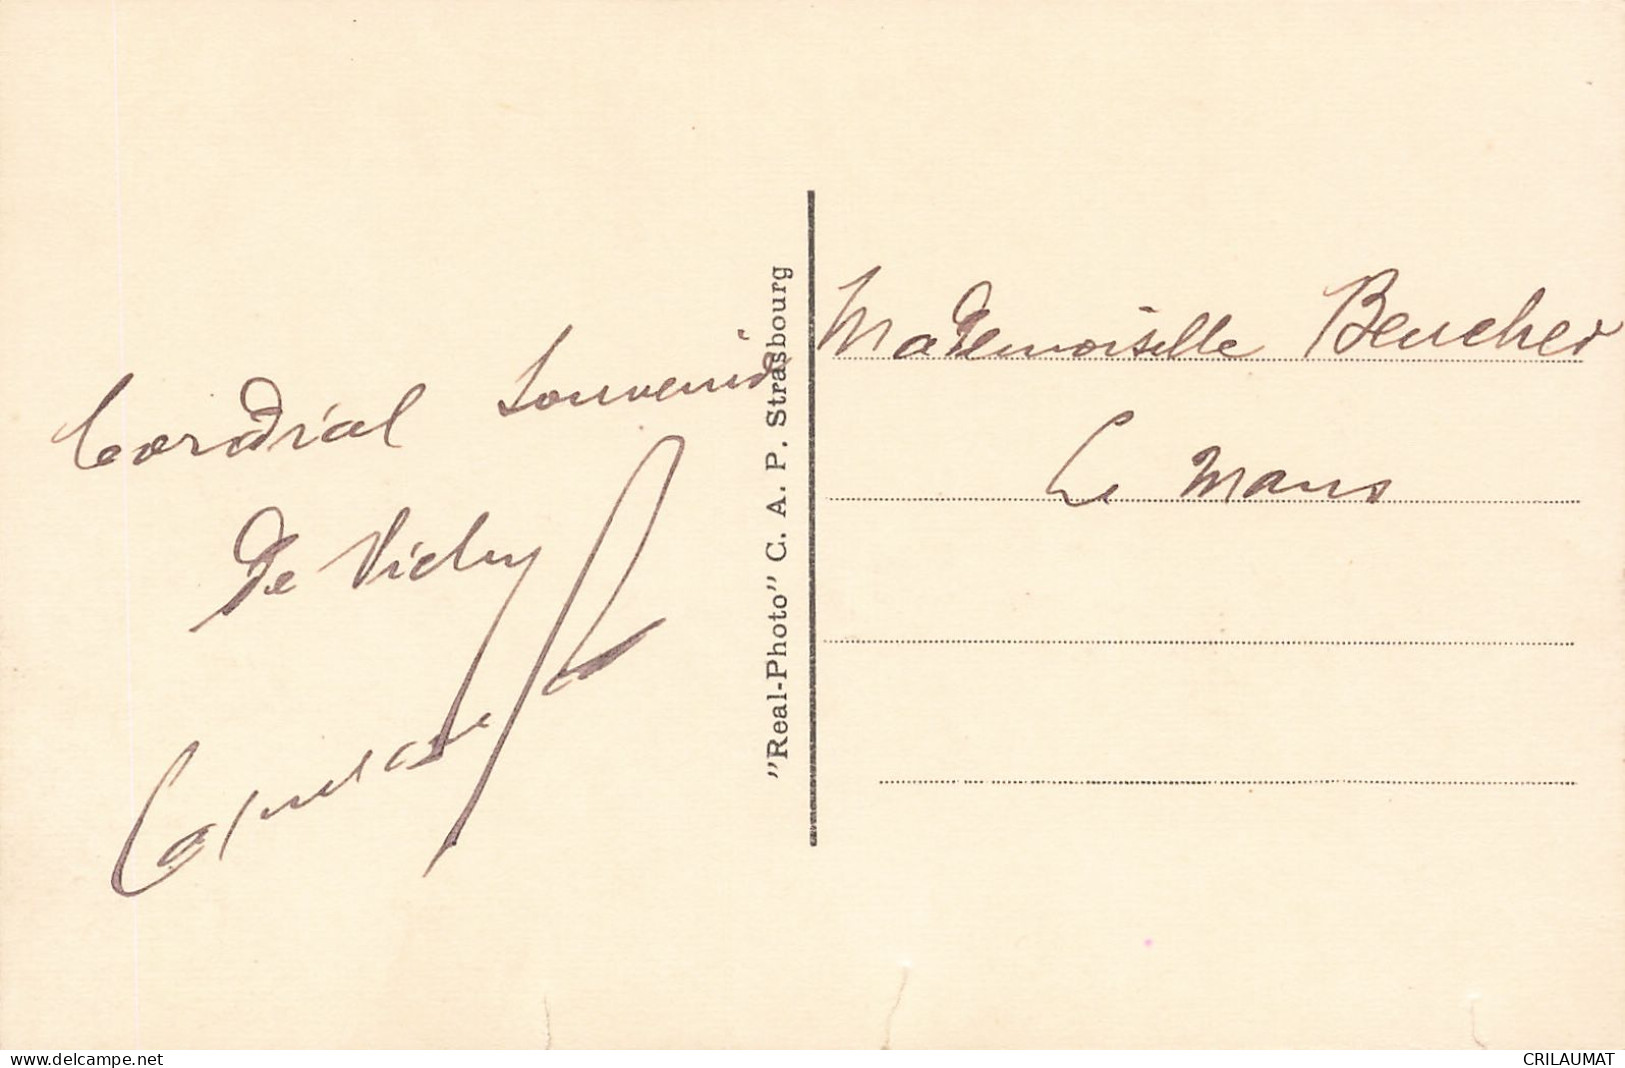 Cordial Souvenir
de Vichy
"Real-Photo" C. A. P. Strasbourg
Mademoiselle Beucher
Le Mans
www.delcampe.net
CRILAUMAT